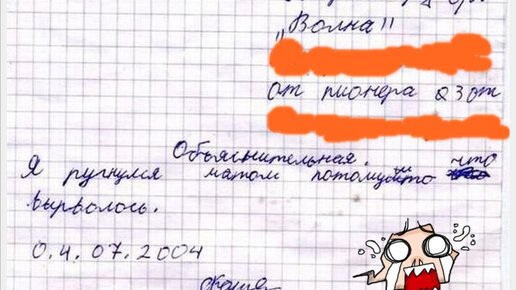 „Волна"
от пионера 23от
Объяснительная.
Я ругнулся матом потому что
вырволось.
0.4.07.2004